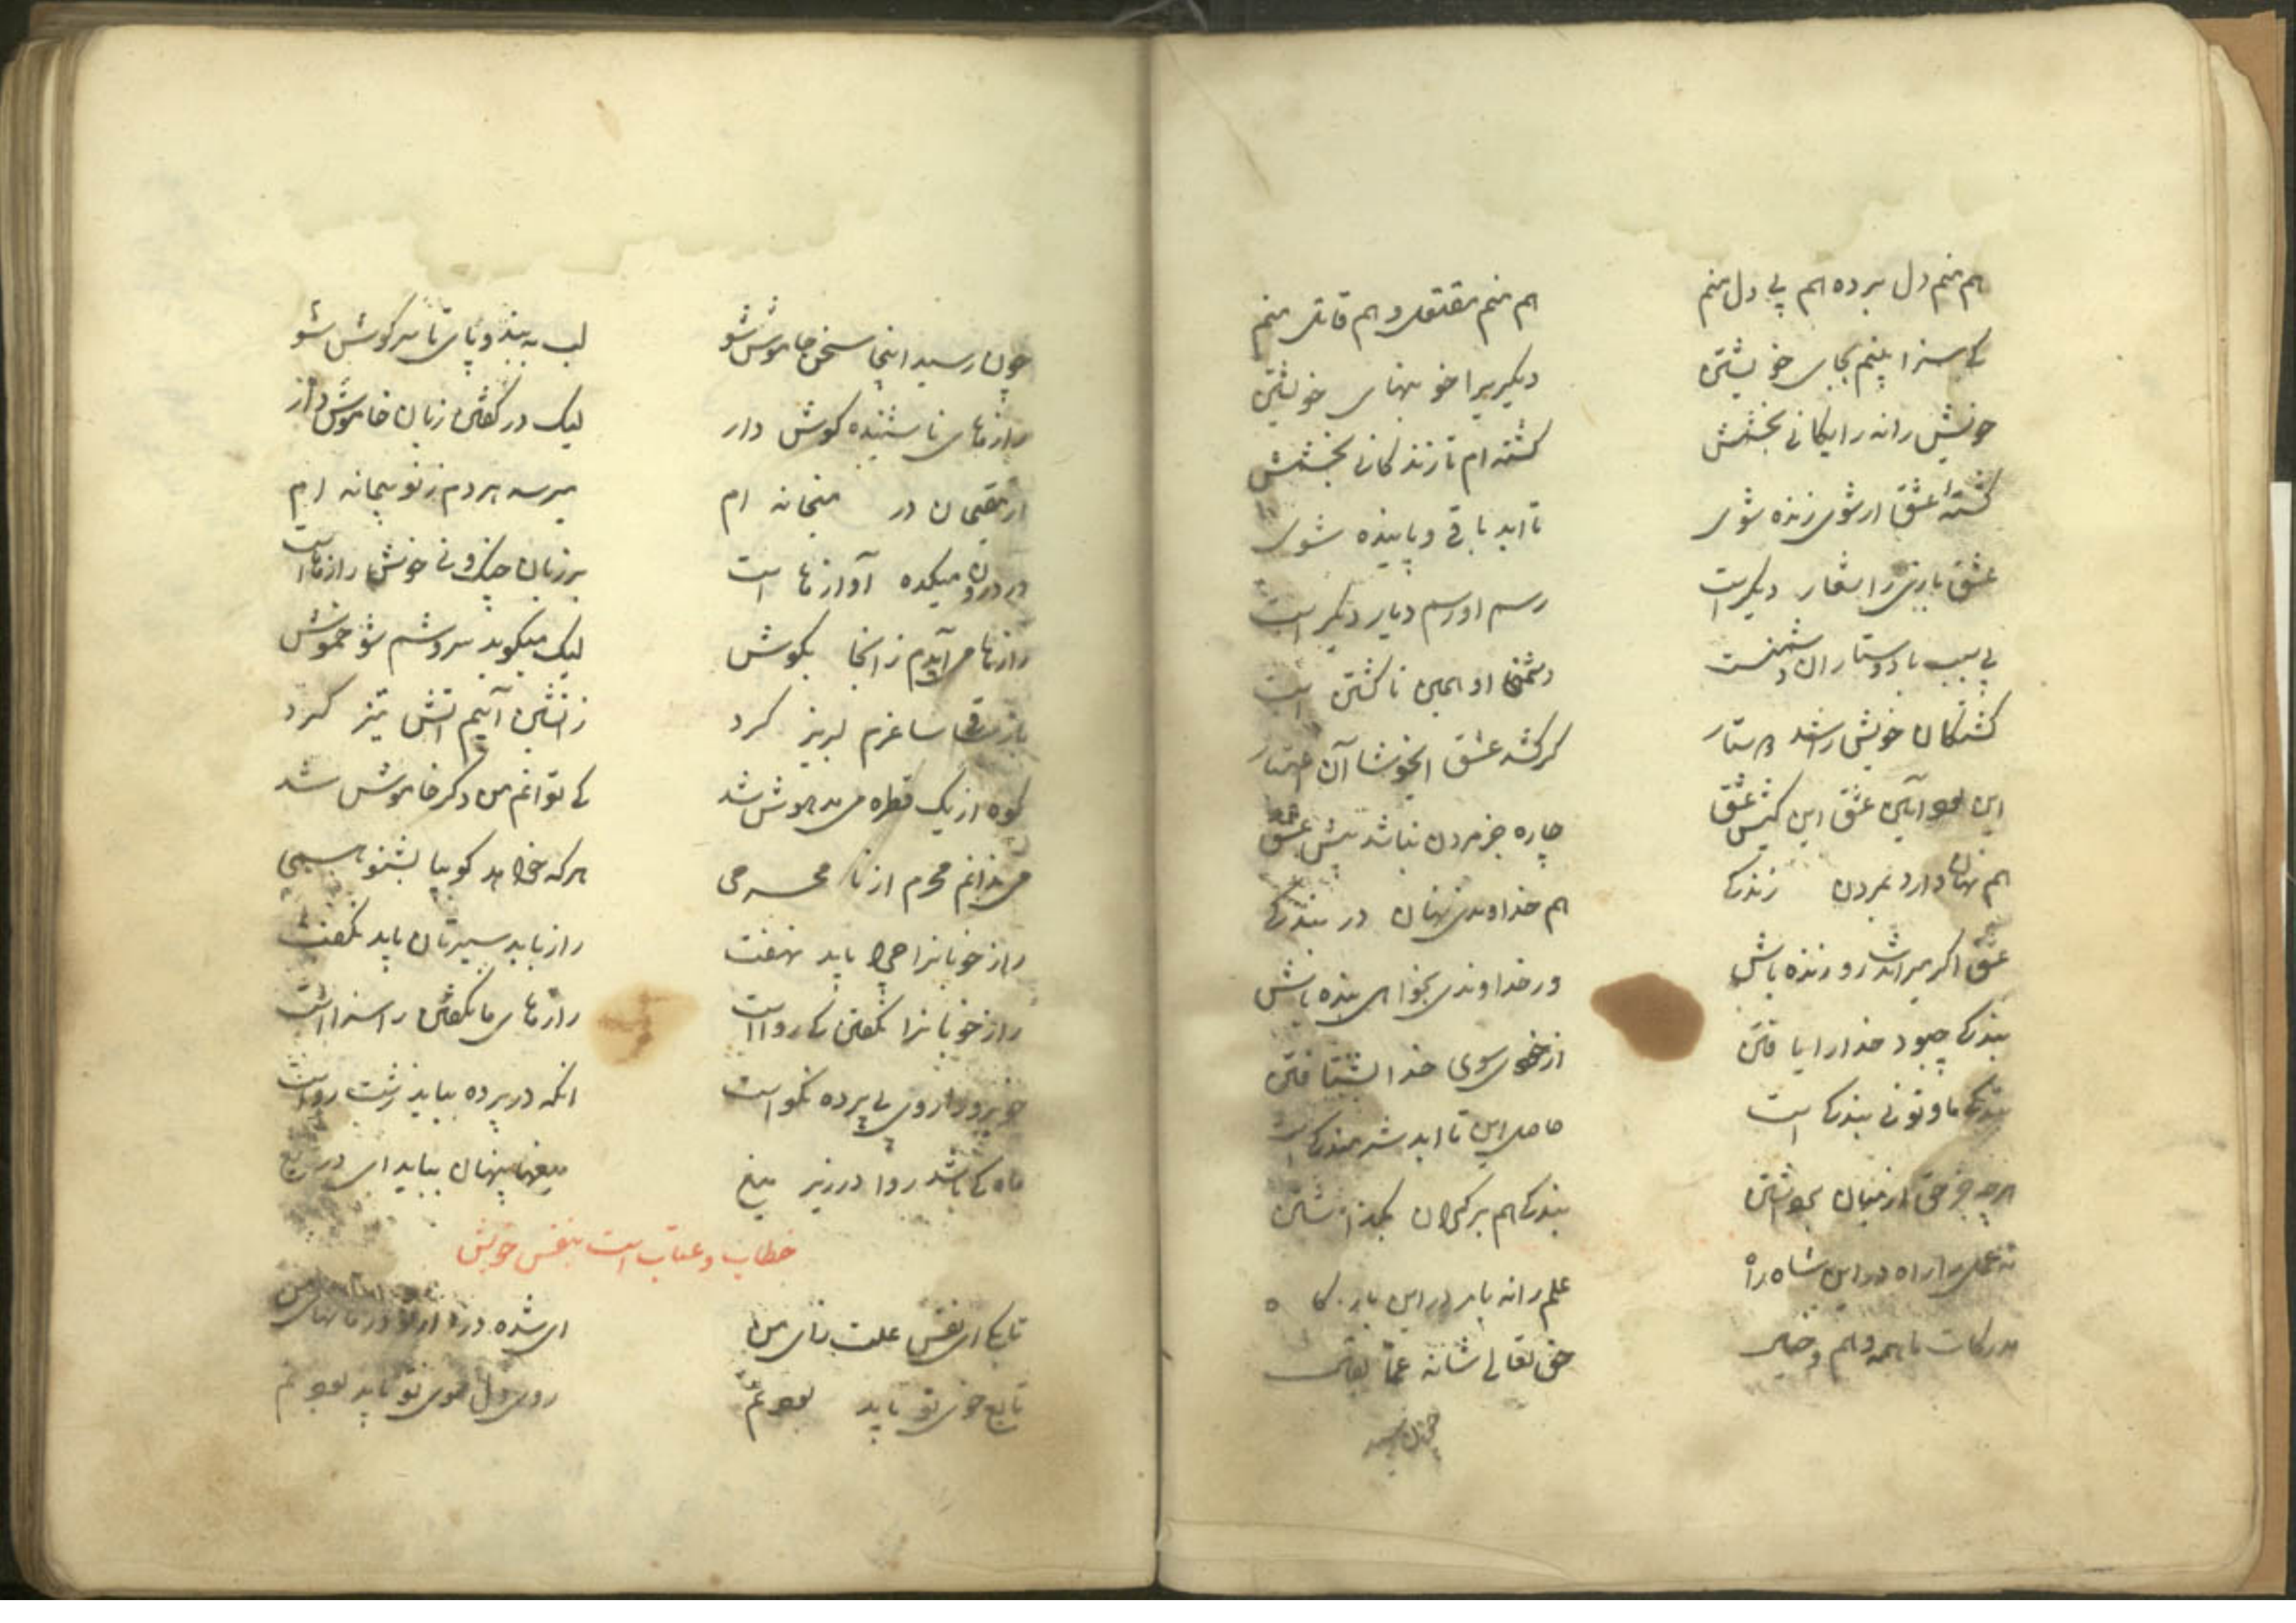 هم منم دل برده هم بی دل منم
هم منم مقتول و هم قاتل منم
کی سزا بینم بجای خویشتن
دیگریرا خونبهای خویشتن
خونش رانه رایکانی بخشمش
کشته ام تا زندکانی بخشمش
کشته عشق ار شوی زنده شوی
تا ابد باقی و پاینده شوی
عشق بازی را شعار دیگر است
رسم او رسم دیار دیگر است
بی سبب با دوستاران دشمنست
دشمنی او همین ناکشتن است
کشتکان خویش را شد دوستار
کر کشد عشق ایخوشا آن
این بود آیین عشق این کیش عشق
چاره جز مردن نباشد پیش عشق
هم نهان دارد بمردن زندکی
هم خداوندی نهان در بندکی
عشق اکر میراندت رو زنده باش
ور خداوندی بخواهی بنده باش
بندکی چبود خدا را یافتن
از خودی سوی خدا بشتافتن
بندکی ما و تو نی بندکی است
حاصل این تا ابد شرمندکی است
هرچه جز حق از میان برداشتن
بندکی هم بر کران بکذاشتن
نه عمل را راه در این شاه راه
علم را نه بار در این بارکاه
مدرکات ما همه وهم و خیال
حق تعالی شانه عما یقال
چون رسید
چون رسید اینجا سخن خاموش شو
لب به بند و پای تا سر کوش شو
رازهای ناشنیده کوش دار
لیک در کفتن زبان خاموش دار
از مقیمان در میخانه ام
میرسد هر دم ز نو پیمانه ام
در درون میکده آوازها است
بر زبان چنک و نی خوش رازها است
رازها می آیدم زانجا بکوش
لیک میکوید سروشم شو خموش
باز ساقی ساغرم لبریز کرد
زاتشین آبیم اتش تیز کرد
کوه از یک قطره می مدهوش شد
کی توانم من دکر خاموش شد
می ندانم محرم از نا محرمی
هر که خواهد کو بیا بشنو همی
راز خوبانرا چرا باید نهفت
راز باید سیرتان باید نکفت
راز خوبانرا نکفتن کی روا است
رازهای ما نکفتن را سزا است
خوبرو را روی بی پرده نکو است
انکه در پرده بباید زشت رو است
ماه کی باشد روا در زیر میغ
میغها پنهان بباید ای دریغ
خطاب و عتاب است بنفس خویش
تا بکی ای نفس علت زای من
ای شده درد از تو درمانهای من
تابع خوی تو باید بودنم
روی دل سوی تو باید بودنم